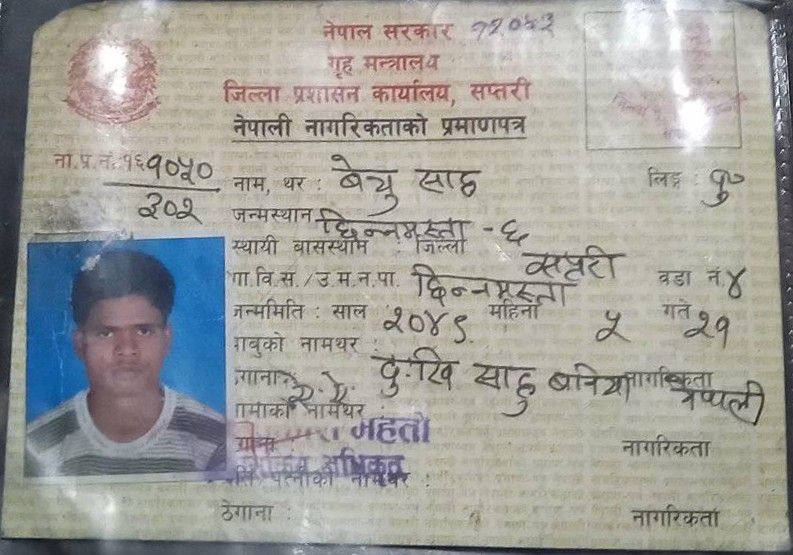 नेपाल सरकार १२०५३
गृह मन्त्रालय
जिल्ला प्रशासन कार्यालय, सप्तरी
नेपाली नागरिकताको प्रमाणपत्र
ना.प्र.नं. १६१०५०
३०२
नाम, थर : बेचु साह लिङ्ग : पु०
जन्मस्थान छिन्नमस्ता - ६
स्थायी बासस्थान : जिल्ला सप्तरी
गा.वि.स./उ.म.न.पा. छिन्नमस्ता वडा नं ४
जन्ममिति : साल २०४९ महिना ५ गते २१
बाबुको नामथर : दुःखि साहु बनिया
ठेगाना ऐ. ऐ. नागरिकता नेपाली
आमाको नामथर :
महतो
नागरिकता
अधिकृत
पत्नीको नामथर :
ठेगाना : नागरिकता